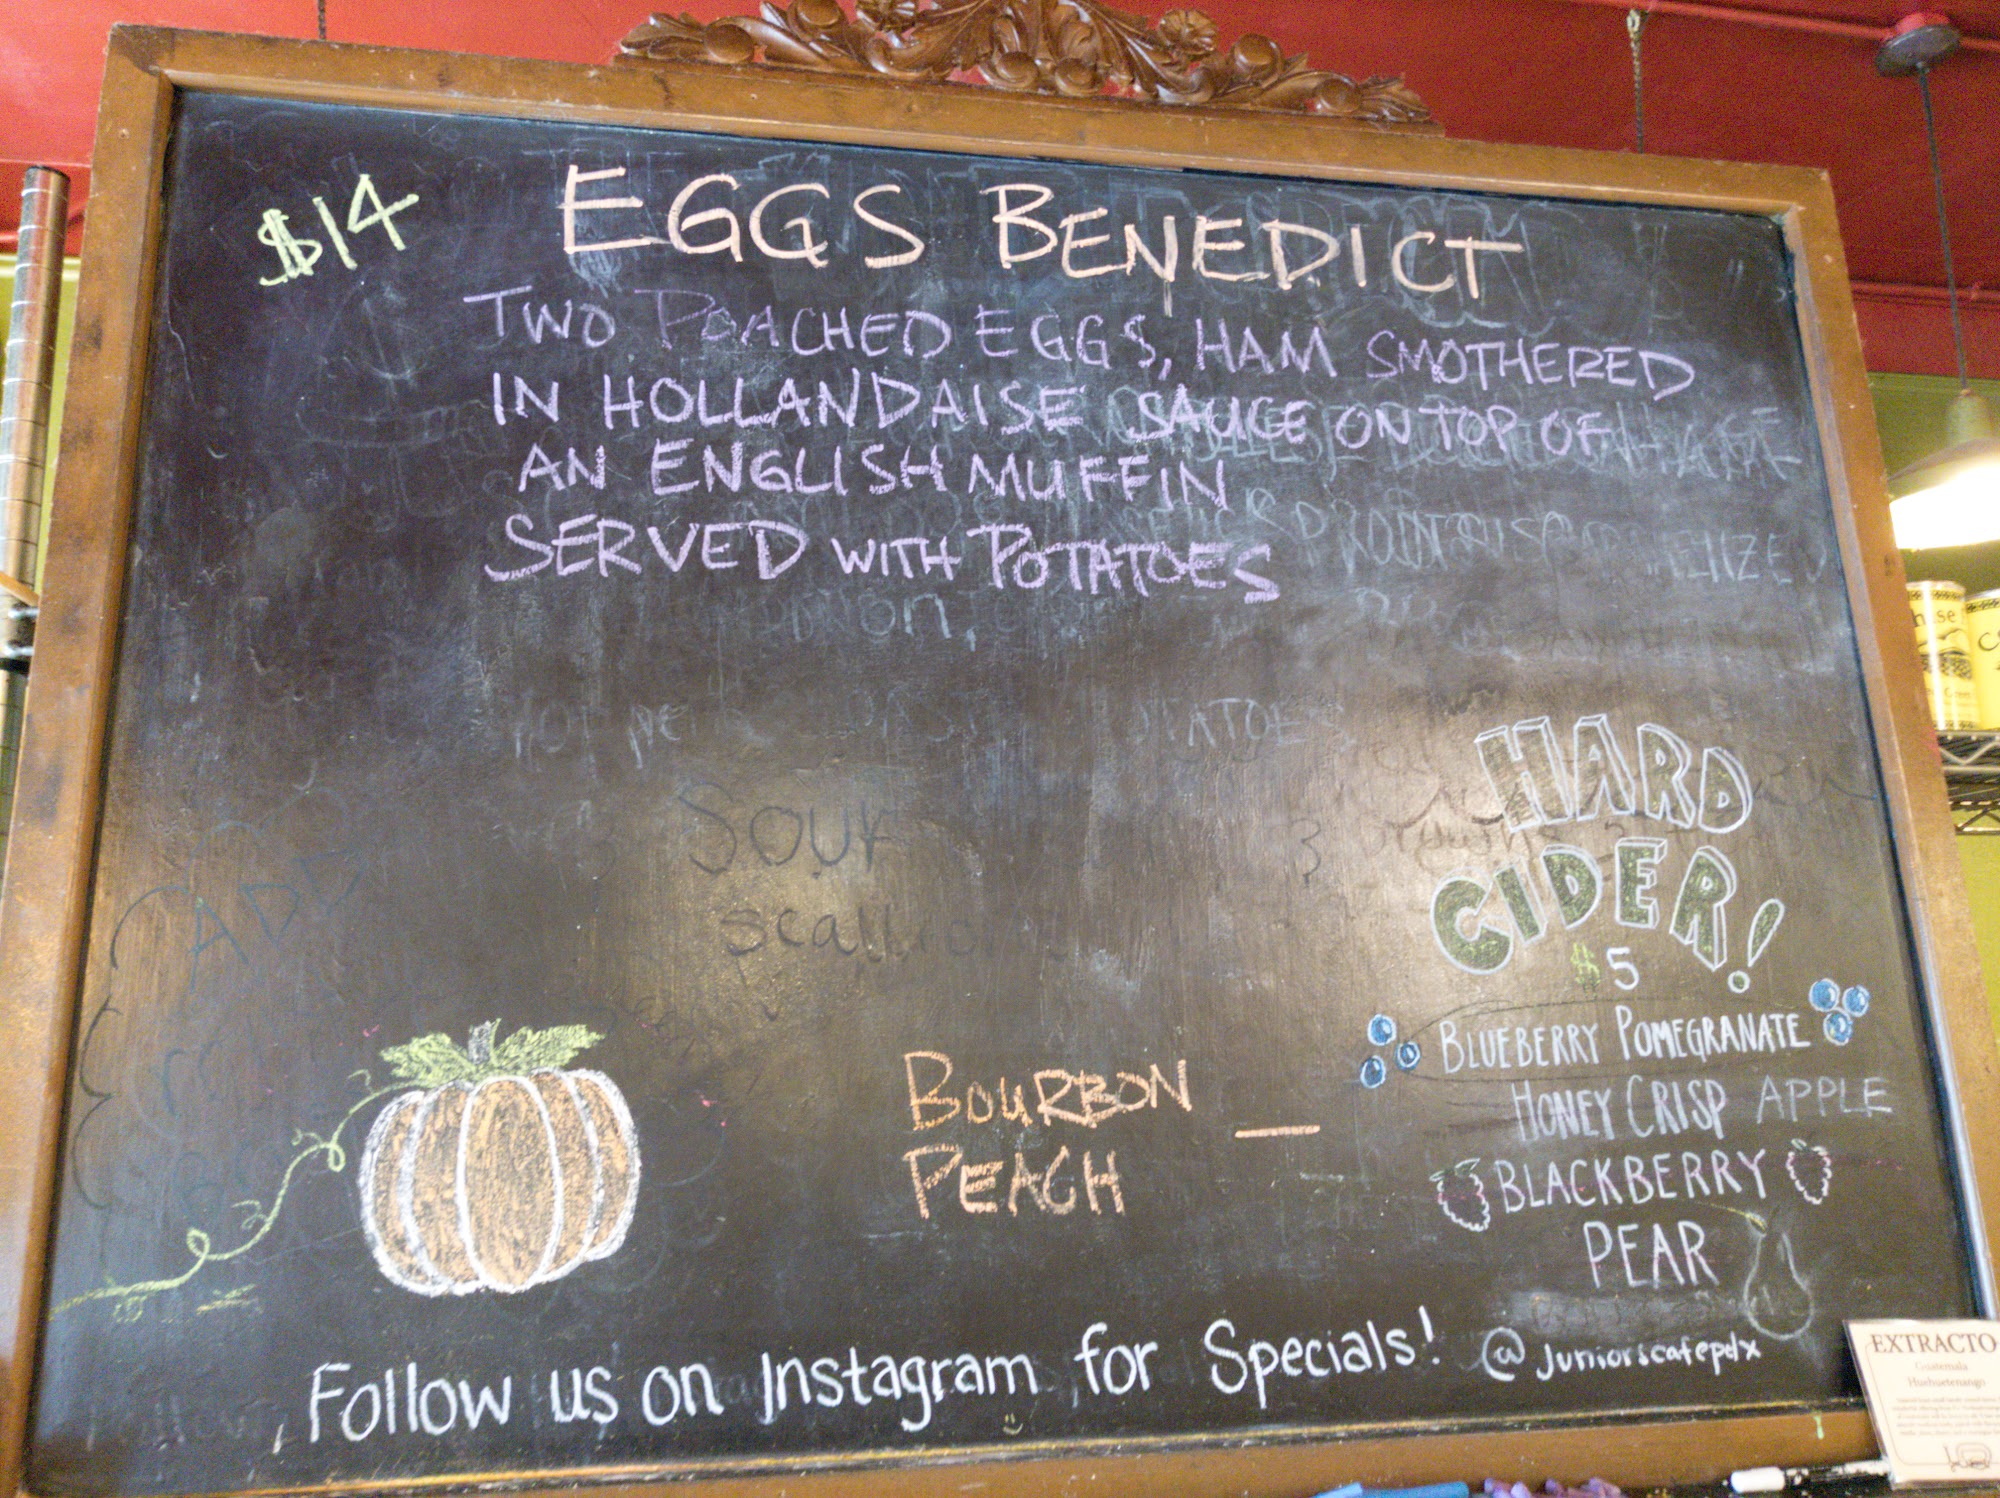 $14
EGGS BENEDICT
TWO POACHED EGGS, HAM SMOTHERED
IN HOLLANDAISE SAUCE ON TOP OF
AN ENGLISH MUFFIN
SERVED WITH POTATOES
Sour
ADD
HARD
CIDER!
$5
BLUEBERRY POMEGRANATE
HONEY CRISP APPLE
BLACKBERRY
PEAR
BOURBON
PEACH
Follow us on Instagram for Specials! @juniorscafepdx
EXTRACTO
Guatemala
Huehuetenango